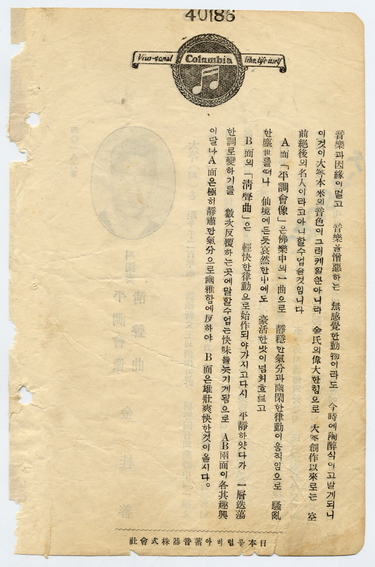 40186
Viva-tonal Columbia like life itself
音樂과因緣이멀고 音樂을憎惡하는 無感覺한動物이라도 今時에陶醉식이고말게되니
이것이大笒本來의音色이그러케할뿐아니라 金氏의偉大한힘으로 大笒創作以來로는 空
前絶後의名人이라고아니할수업슬것임니다
A面「平調會像」은佛樂中의一曲으로 靜穩한氣分과幽閑한律動이움직임으로 騷亂
한塵世를떠나 仙境에든듯哀然한中에도 豪活한맛이넘처흐르고
B面의「淸聲曲」은 輕快한律動으로始作되야가지고다시 平靜하얏다가 一層迭蕩
한調로變하기를 數次反覆하는곳에말할수업는快味를늣기게됨으로 AB兩面이各其趣興
이달나A面은極히靜肅한氣分으로幽雅함에反하야 B面은雄壯爽快한것이올시다。
日本콜럼비아蓄音器株式會社